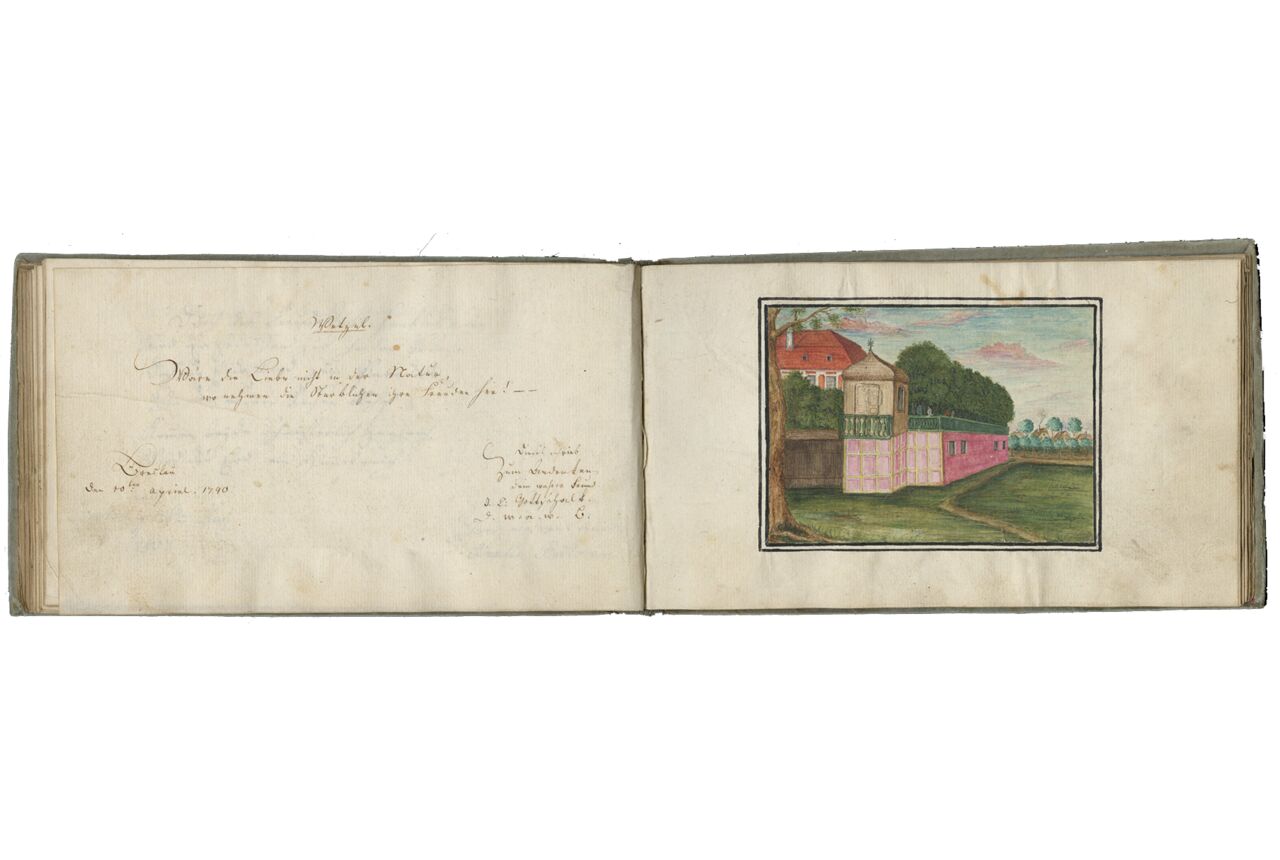 Wetzel.
Wäre die Liebe nicht in der Natur,
wo nehmen die Sterblichen ihre Freuden her! —
Breslau
den 10ten April. 1790
Dies schrieb
zum Andenken
dein wahrer Freund
Gottschalk.
d. w. a. w. B.